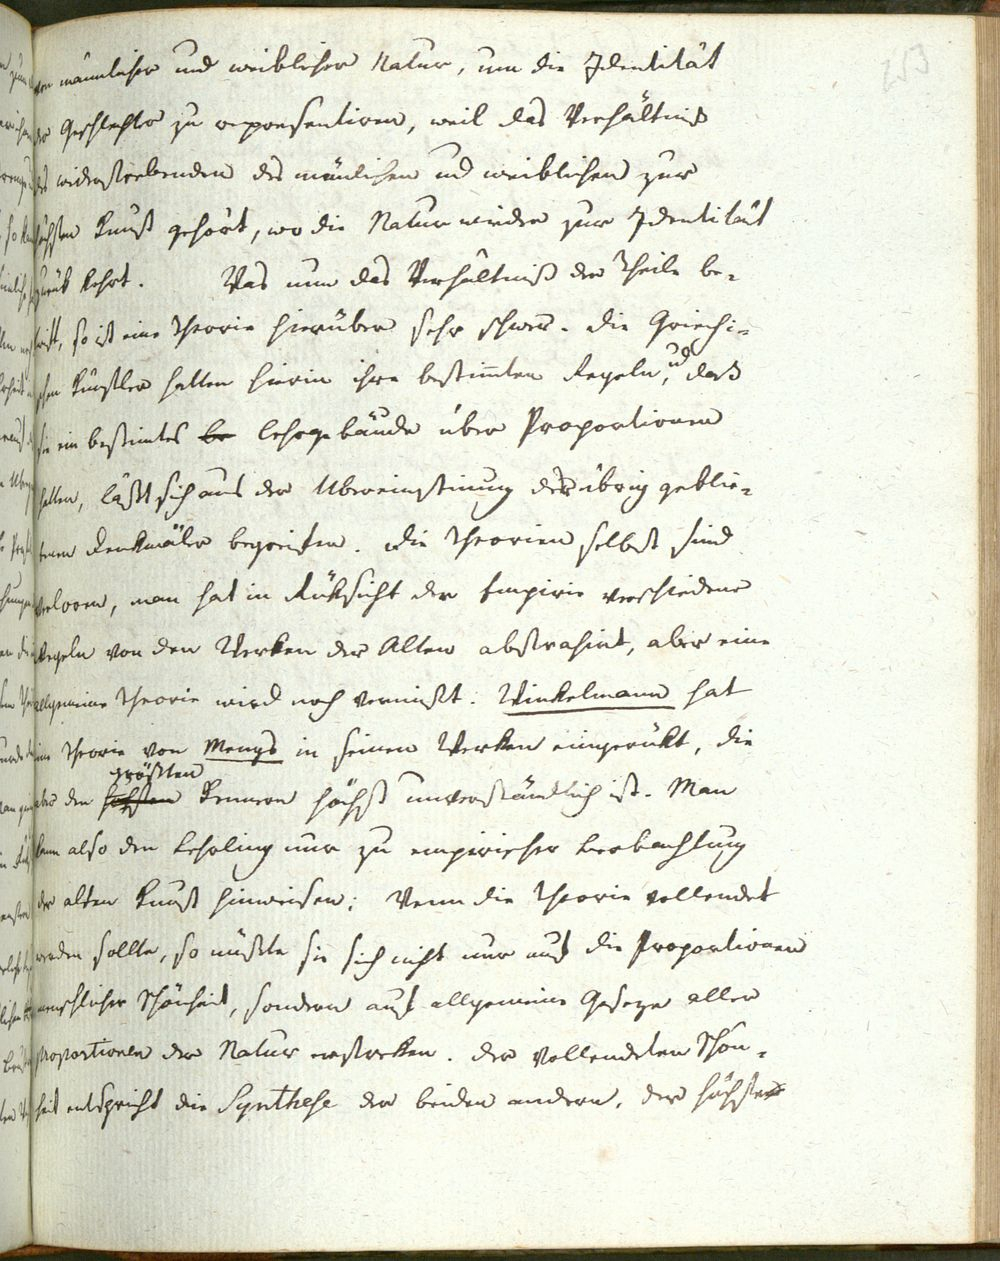 253
von mänlicher und weiblicher Natur, um die Identität
der Geschlechter zu repræsentiren, weil das Verhältniß
des widerstrebenden des mänlichen und weiblichen zur
höchsten Kunst gehört, wo die Natur wieder zur Identität
zurük kehrt. Was nun das Verhältniß der Theile be-
trift, so ist eine Theorie hierüber sehr schwer. Die Griechi-
schen Künstler hatten hierin ihre bestimten Regeln, und daß
sie ein bestimtes be Lehrgebäude über Proportionen
hatten, läßt sich aus der Übereinstimung der übrig geblie-
benen Denkmäler begreifen. Die Theorien selbst sind
verloren, man hat in Rüksicht der Empirie verschiedene
Regeln von den Werken der Alten abstrahirt, aber eine
allgemeine Theorie wird noch vermißt. Winkelmann hat
eine Theorie von Mengs in seinen Werken eingerükt, die
größten
aber den höchsten Kennern höchst unverständlich ist. Man
kann also den Lehrling nur zu empirischer Beobachtung
der alten Kunst hinweisen; Wenn die Theorie vollendet
werden sollte, so müßte sie sich nicht nur auf die Proportionen
menschlicher Schönheit, sondern auf allgemeine Geseze aller
Proportionen der Natur erstreken. Der vollendeten Schön-
heit entspricht die Synthese der beiden andern, der höchste